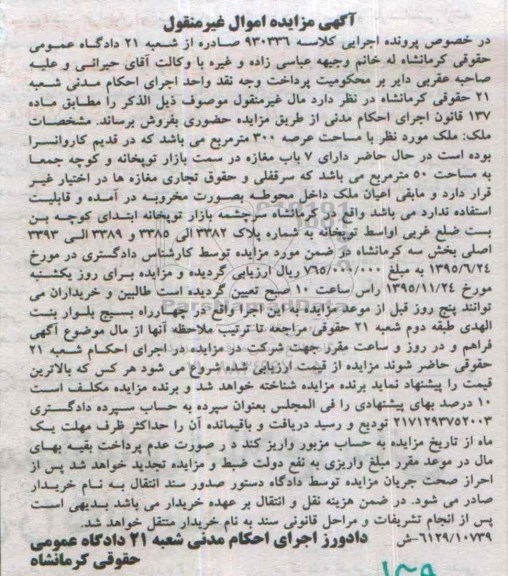 آگهی مزایده اموال غیرمنقول
در خصوص پرونده اجرایی کلاسه ۹۳۰۳۳۶ صادره از شعبه ۲۱ دادگاه عمومی
حقوقی کرمانشاه له خانم وجیهه عباسی زاده و غیره با وکالت آقای حیرانی و علیه
صاحبه عقربی دایر بر محکومیت پرداخت وجه نقد واحد اجرای احکام مدنی شعبه
۲۱ حقوقی کرمانشاه در نظر دارد مال غیرمنقول موصوف ذیل الذکر را مطابق ماده
۱۳۷ قانون اجرای احکام مدنی از طریق مزایده حضوری بفروش برساند. مشخصات
ملک: ملک مورد نظر با مساحت عرصه ۳۰۰ مترمربع می باشد که در قدیم کاروانسرا
بوده است در حال حاضر دارای ۷ باب مغازه در سمت بازار توپخانه و کوچه جمعا
به مساحت ۵۰ مترمربع می باشد که سرقفلی و حقوق تجاری مغازه ها در اختیار غیر
قرار دارد و مابقی اعیان ملک داخل محوطه بصورت مخروبه در آمده و قابلیت
استفاده ندارد می باشد واقع در کرمانشاه سرچشمه بازار توپخانه ابتدای کوچه بن
بست ضلع غربی اواسط توپخانه به شماره پلاک ۳۳۸۲ الی ۳۳۸۵ و ۳۳۸۹ الی ۳۳۹۳
اصلی بخش سه کرمانشاه در ضمن مورد مزایده توسط کارشناس دادگستری در مورخ
۱۳۹۵/۶/۲۴ به مبلغ ۷۶۵/۰۰۰/۰۰۰ ریال ارزیابی گردیده و مزایده برای روز یکشنبه
مورخ ۱۳۹۵/۱۱/۲۴ راس ساعت ۱۰ صبح تعیین گردیده است طالبین و خریداران می
توانند پنج روز قبل از موعد مزایده به این اجرا واقع در چهارراه بسیج بلوار بنت
الهدی طبقه دوم شعبه ۲۱ حقوقی مراجعه تا ترتیب ملاحظه آنها از مال موضوع آگهی
فراهم و در روز و ساعت مقرر جهت شرکت در مزایده در اجرای احکام شعبه ۲۱
حقوقی حاضر شوند مزایده از قیمت ارزیابی شده شروع می شود هر کس که بالاترین
قیمت را پیشنهاد نماید برنده مزایده شناخته خواهد شد و برنده مزایده مکلف است
۱۰ درصد بهای پیشنهادی را فی المجلس بعنوان سپرده به حساب سپرده دادگستری
۲۱۷۱۲۹۳۷۵۲۰۰۳ تودیع و رسید دریافت و باقیمانده آن را حداکثر ظرف مهلت یک
ماه از تاریخ مزایده به حساب مزبور واریز کند در صورت عدم پرداخت بقیه بهای
مال در موعد مقرر مبلغ واریزی به نفع دولت ضبط و مزایده تجدید خواهد شد پس از
احراز صحت جریان مزایده توسط دادگاه دستور صدور سند انتقال به نام خریدار
صادر می شود. در ضمن هزینه نقل و انتقال بر عهده خریدار می باشد بدیهی است
پس از انجام تشریفات و مراحل قانونی سند به نام خریدار منتقل خواهد شد.
۶۱۲۹/۱۰۷۳۹-ش دادورز اجرای احکام مدنی شعبه ۲۱ دادگاه عمومی
حقوقی کرمانشاه